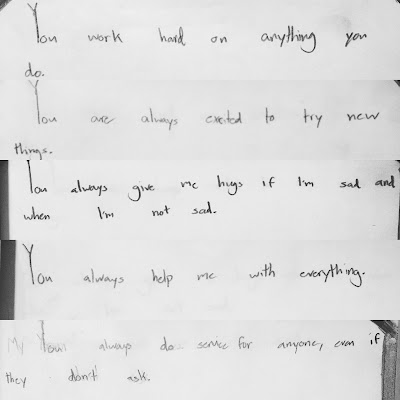 You work hard on anything you
do.
You are always excited to try new
things.
You always give me hugs if I'm sad and
when I'm not sad.
You always help me with everything.
My You always do service for anyone, even if
they don't ask.